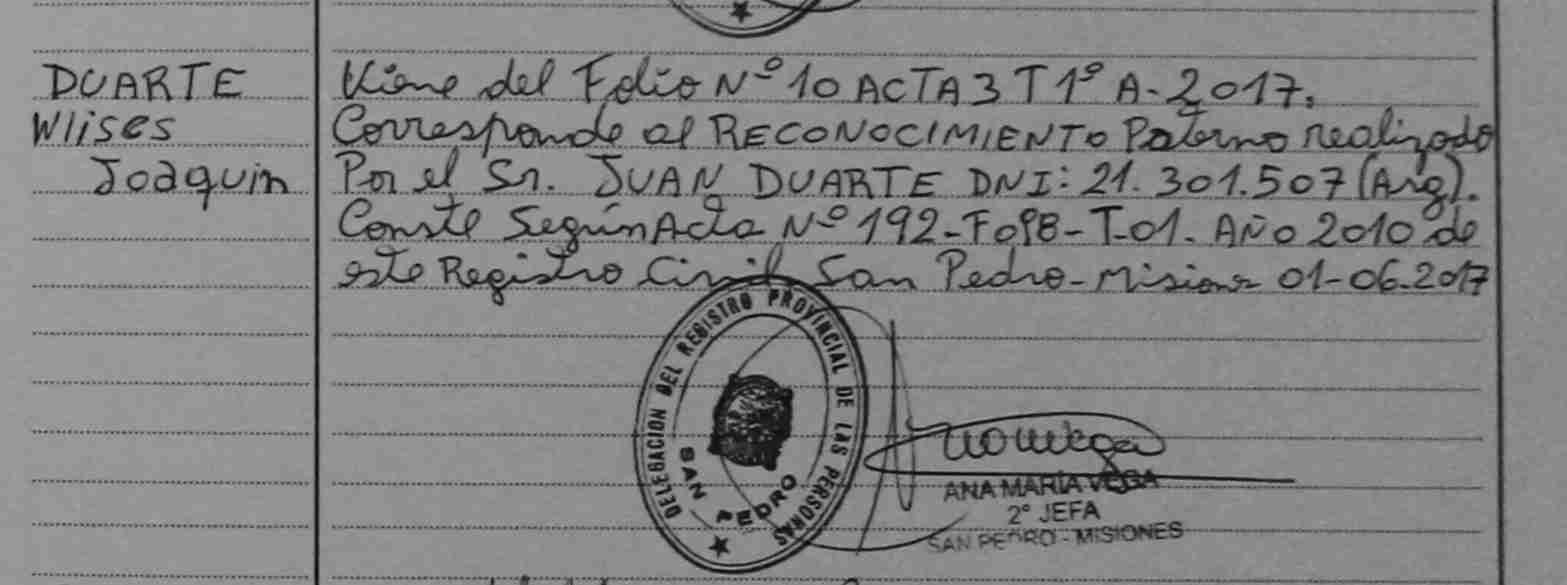 DUARTE
Wlises
Joaquin
Viene del Folio Nº 10 ACTA 3 T 1º A-2017.
Corresponde al RECONOCIMIENTO Paterno realizado
Por el Sr. JUAN DUARTE DNI: 21.301.507 (Arg).
Conste Según Acta Nº 192-F098-T-01. Año 2010 de
este Registro Civil San Pedro-Misiones 01-06-2017
DELEGACION DEL REGISTRO PROVINCIAL DE LAS PERSONAS
SAN PEDRO
ANA MARIA VEGA
2º JEFA
SAN PEDRO - MISIONES